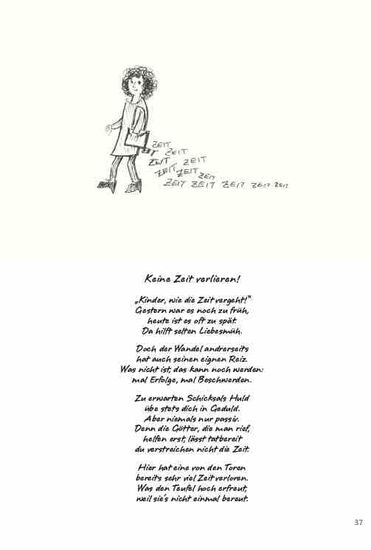 ZEIT
ZEIT ZEIT
ZEIT ZEIT
ZEIT ZEIT ZEIT
ZEIT ZEIT ZEIT ZEIT ZEIT
Keine Zeit verlieren!
„Kinder, wie die Zeit vergeht!“
Gestern war es noch zu früh,
heute ist es oft zu spät.
Da hilft selten Liebesmüh.
Doch der Wandel andrerseits
hat auch seinen eignen Reiz.
Was nicht ist, das kann noch werden:
mal Erfolge, mal Beschwerden.
Zu erwarten Schicksals Huld
übe stets dich in Geduld.
Aber niemals nur passiv.
Denn die Götter, die man rief,
helfen erst, lässt tatbereit
du verstreichen nicht die Zeit.
Hier hat eine von den Toren
bereits sehr viel Zeit verloren.
Was den Teufel hoch erfreut,
weil sie's nicht einmal bereut.
37